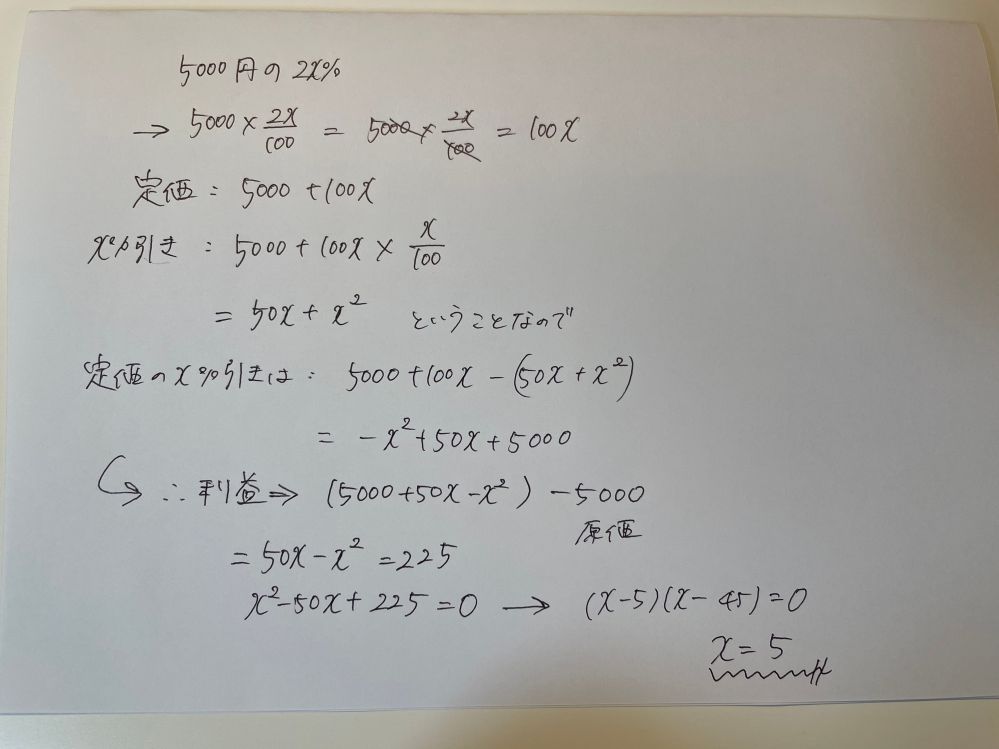 5000円の2x%
→ 5000 × 2x/100 = 5000 × 2x/100 = 100x
定価 : 5000 + 100x
x%引き : 5000 + 100x × x/100
= 50x + x² ということなので
定価のx%引きは : 5000 + 100x - (50x + x²)
= -x² + 50x + 5000
∴ 利益 ⇒ (5000 + 50x - x²) - 5000
原価
= 50x - x² = 225
x² - 50x + 225 = 0 → (x - 5)(x - 45) = 0
x = 5